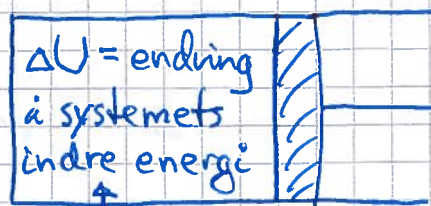 ΔU = endring
i systemets
indre energi